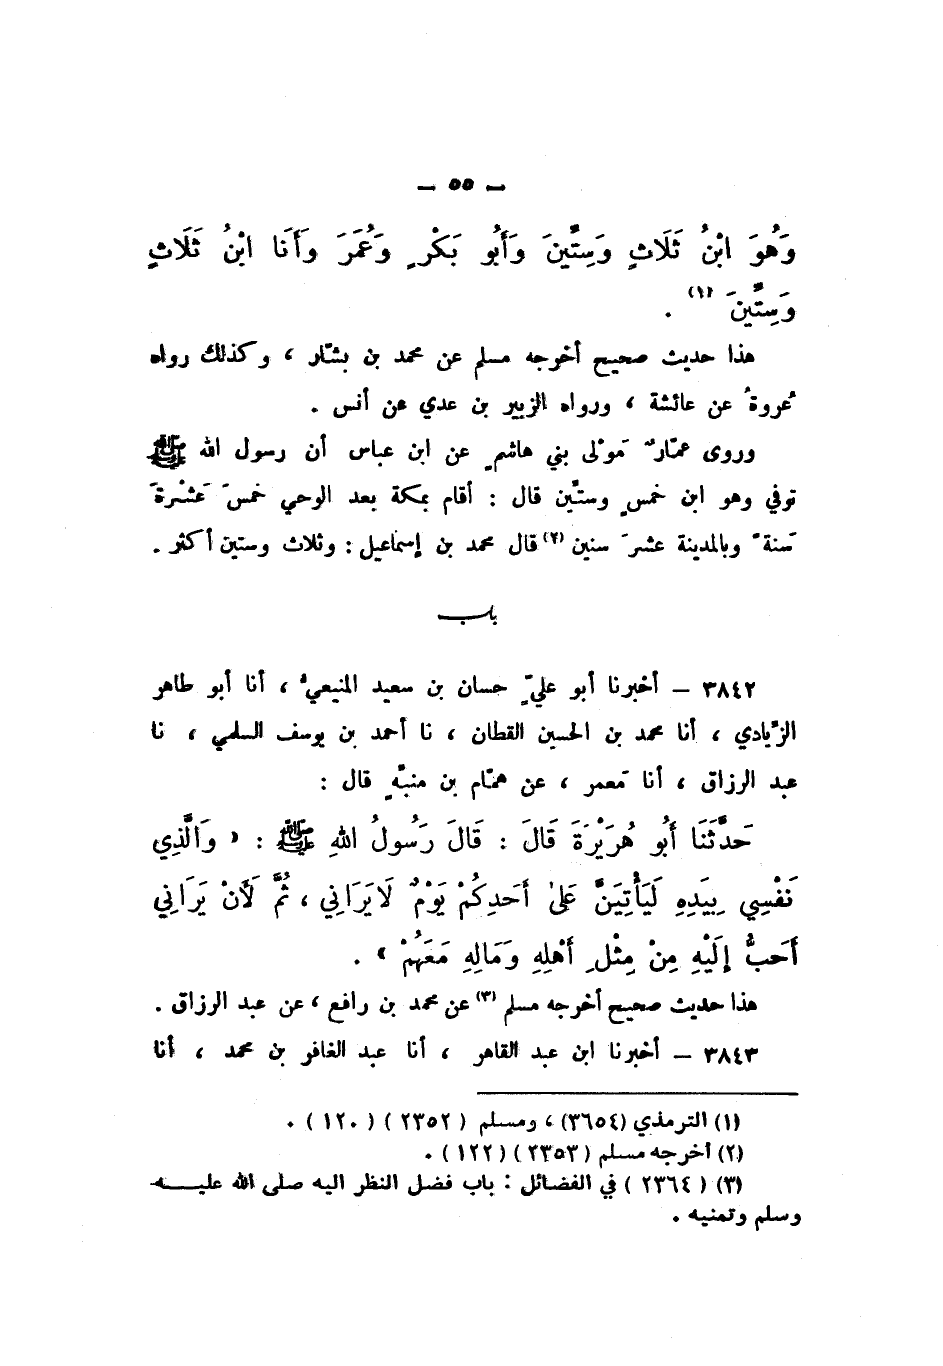 ـ ٥٥ ـ
وَهُوَ ابْنُ ثَلَاثٍ وَسِتِّينَ وَأَبُو بَكْرٍ وَعُمَرَ وَأَنَا ابْنُ ثَلَاثٍ
وَسِتِّينَ (١) .
هذا حديث صحيح أخرجه مسلم عن محمد بن بشّار ، وكذلك رواه
عُروةُ عن عائشة ، ورواه الزبير بن عدي عن أنس .
وروى عمّارٌ مَوْلى بني هاشمٍ عن ابن عباس أن رسول الله ﷺ
توفي وهو ابن خمسٍ وستّين قال : أقام بمكة بعد الوحي خمسَ عَشْرةَ
سَنةً وبالمدينة عشرَ سنين (٢) قال محمد بن إسماعيل : وثلاث وستين أكثر .
باب
٣٨٤٢ ـ أخبرنا أبو عليٍّ حسان بن سعيد المنيعيُّ ، أنا أبو طاهر
الزّيادي ، أنا محمد بن الحسين القطان ، نا أحمد بن يوسف السلمي ، نا
عبد الرزاق ، أنا مَعمر ، عن همّام بن منبّهٍ قال :
حَدَّثَنَا أَبُو هُرَيْرَةَ قَالَ : قَالَ رَسُولُ اللهِ ﷺ : « وَالَّذِي
نَفْسِي بِيَدِهِ لَيَأْتِيَنَّ عَلىٰ أَحَدِكُمْ يَوْمٌ لَا يَرَانِي ، ثُمَّ لَأَنْ يَرَانِي
أَحَبُّ إِلَيْهِ مِنْ مِثْلِ أَهْلِهِ وَمَالِهِ مَعَهُمْ » .
هذا حديث صحيح أخرجه مسلم (٣) عن محمد بن رافع ، عن عبد الرزاق .
٣٨٤٣ ـ أخبرنا ابن عبد القاهر ، أنا عبد الغافر بن محمد ، أنا
(١) الترمذي (٣٦٥٤) ، ومسلم ( ٢٣٥٢ ) ( ١٢٠ ) .
(٢) أخرجه مسلم ( ٢٣٥٣ ) ( ١٢٢ ) .
(٣) ( ٢٣٦٤ ) في الفضائل : باب فضل النظر اليه صلى الله عليـــه
وسلم وتمنيه .